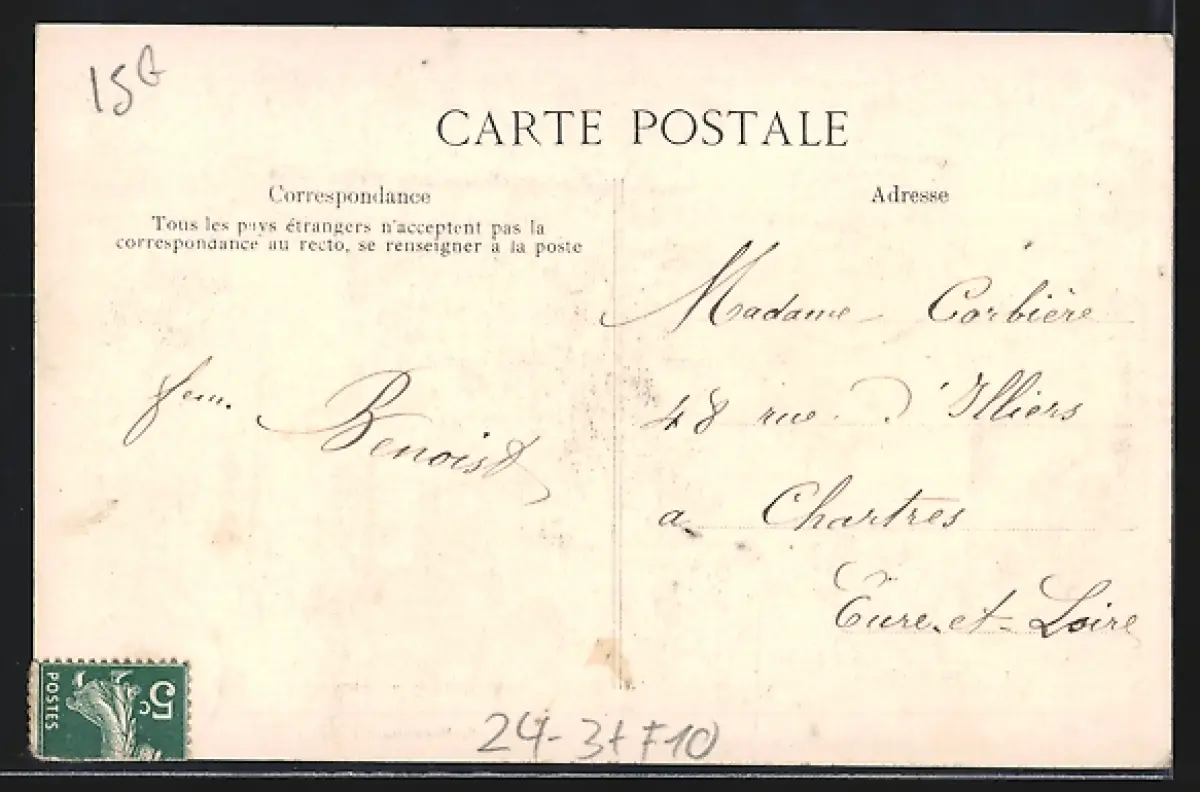 15
CARTE POSTALE
Correspondance
Tous les pays étrangers n'acceptent pas la
correspondance au recto, se renseigner à la poste
Benoist
Adresse
Madame Corbière
48 rue d'Illiers
a Chartres
Eure-et-Loire
POSTES
5c
24-3+F10